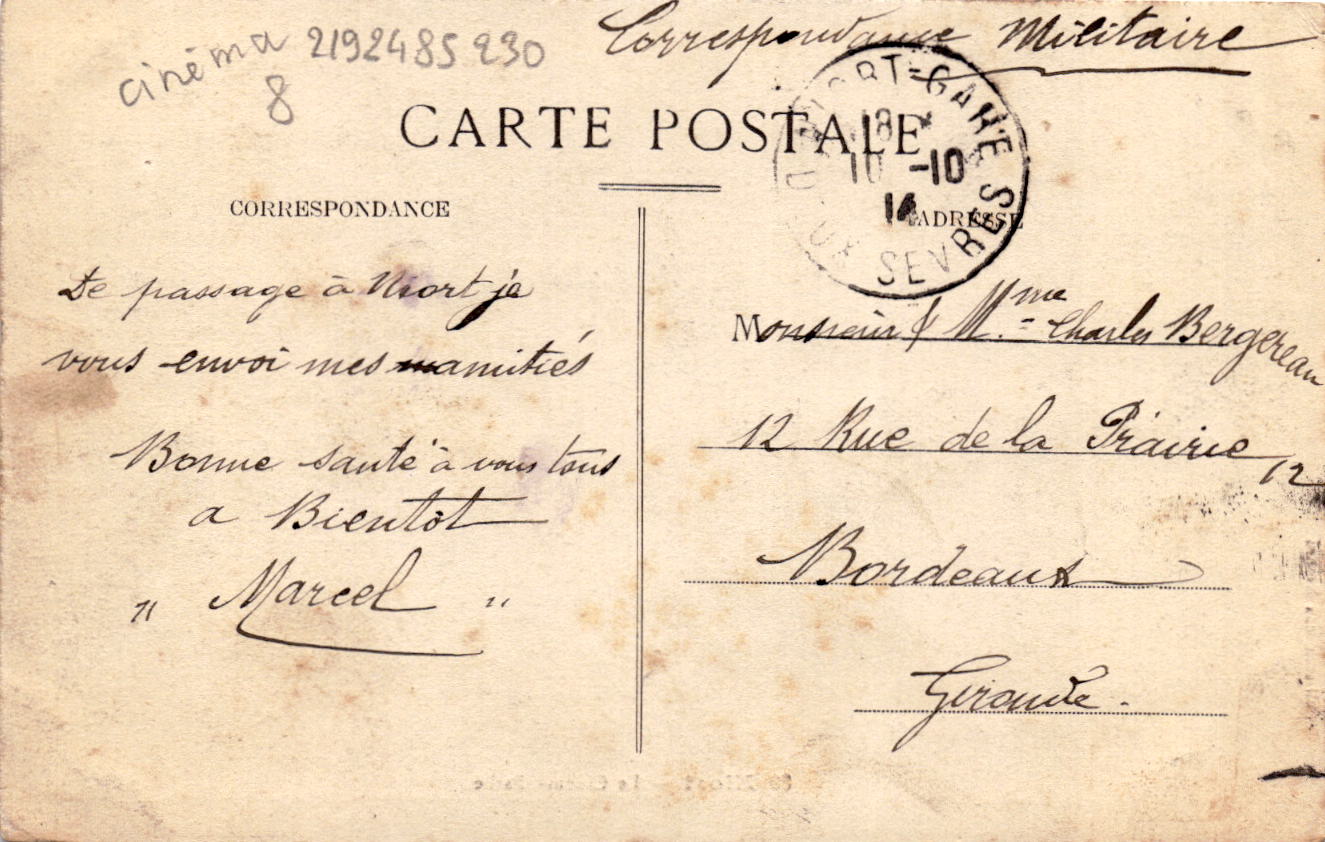 Correspondance Militaire
cinéma 2192485 230
8
CARTE POSTALE
NIORT-GARE
18 *
10 -10
14
DEUX SEVRES
CORRESPONDANCE
ADRESSE
De passage à Niort je
vous envoi mes amitiés
Bonne santé à vous tous
a Bientôt
" Marcel "
Monsieur & Mme Charles Bergereau
12 Rue de la Prairie 12
Bordeaux
Gironde.